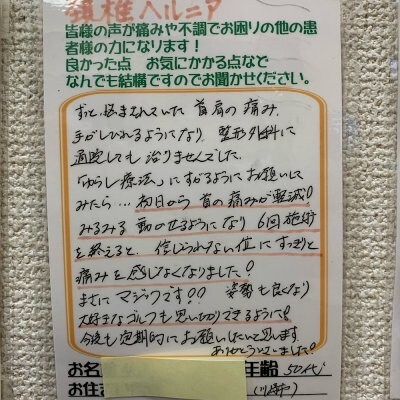 頚椎ヘルニア
皆様の声が痛みや不調でお困りの他の患
者様の力になります！
良かった点　お気にかかる点など
なんでも結構ですのでお聞かせください。
ずっと悩まされていた首肩の痛み、
手がしびれるようになり、整形外科に
通院しても治りませんでした。
「ゆらし療法」にすがるようにお願いして
みたら…初日から首の痛みが軽減！
みるみる動かせるようになり 6回施術
を終えると、信じられない位にすっきりと
痛みを感じなくなりました！
まさにマジックです！！　姿勢も良くなり
大好きなゴルフも思い切りできるように！
今後も定期的にお願いしたいと思います
ありがとうございました！
お名　年齢　50代
お住